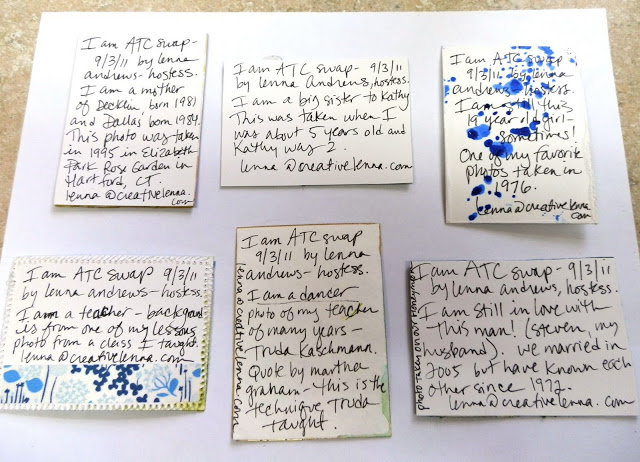 I am ATC swap-
9/3/11 by lenna
andrews-hostess.
I am a mother
of Decklin born 1981
and Dallas born 1984.
This photo was taken
in 1995 in Elizabeth
Park Rose Garden in
Hartford, CT.
lenna@creativelenna.
com
I am ATC swap- 9/3/11
by lenna Andrews, hostess.
I am a big sister to Kathy
This was taken when I
was about 5 years old and
Kathy was 2.
lenna@creativelenna.com
I am ATC swap-
9/3/11 by lenna
andrews-hostess.
I am still this
19 year old girl-
sometimes!
One of my favorite
photos taken in
1976.
lenna@creativelenna.
com
I am ATC swap 9/3/11
by lenna andrews-hostess.
I am a teacher - background
is from one of my lessons
photo from a class I taught.
lenna@creativelenna.com
I am ATC swap
9/3/11 by lenna
andrews-hostess.
I am a dancer
photo of my teacher
of many years-
Truda Kaschmann.
Quote by martha
graham-this is the
technique Truda
taught.
lenna@creativelenna.com
I am ATC swap- 9/3/11
by lenna andrews, hostess.
I am still in love with
this man! (steven, my
husband). we married in
2005 but have known each
other since 1972.
lenna@creativelenna.com
photo taken on our honeymoon